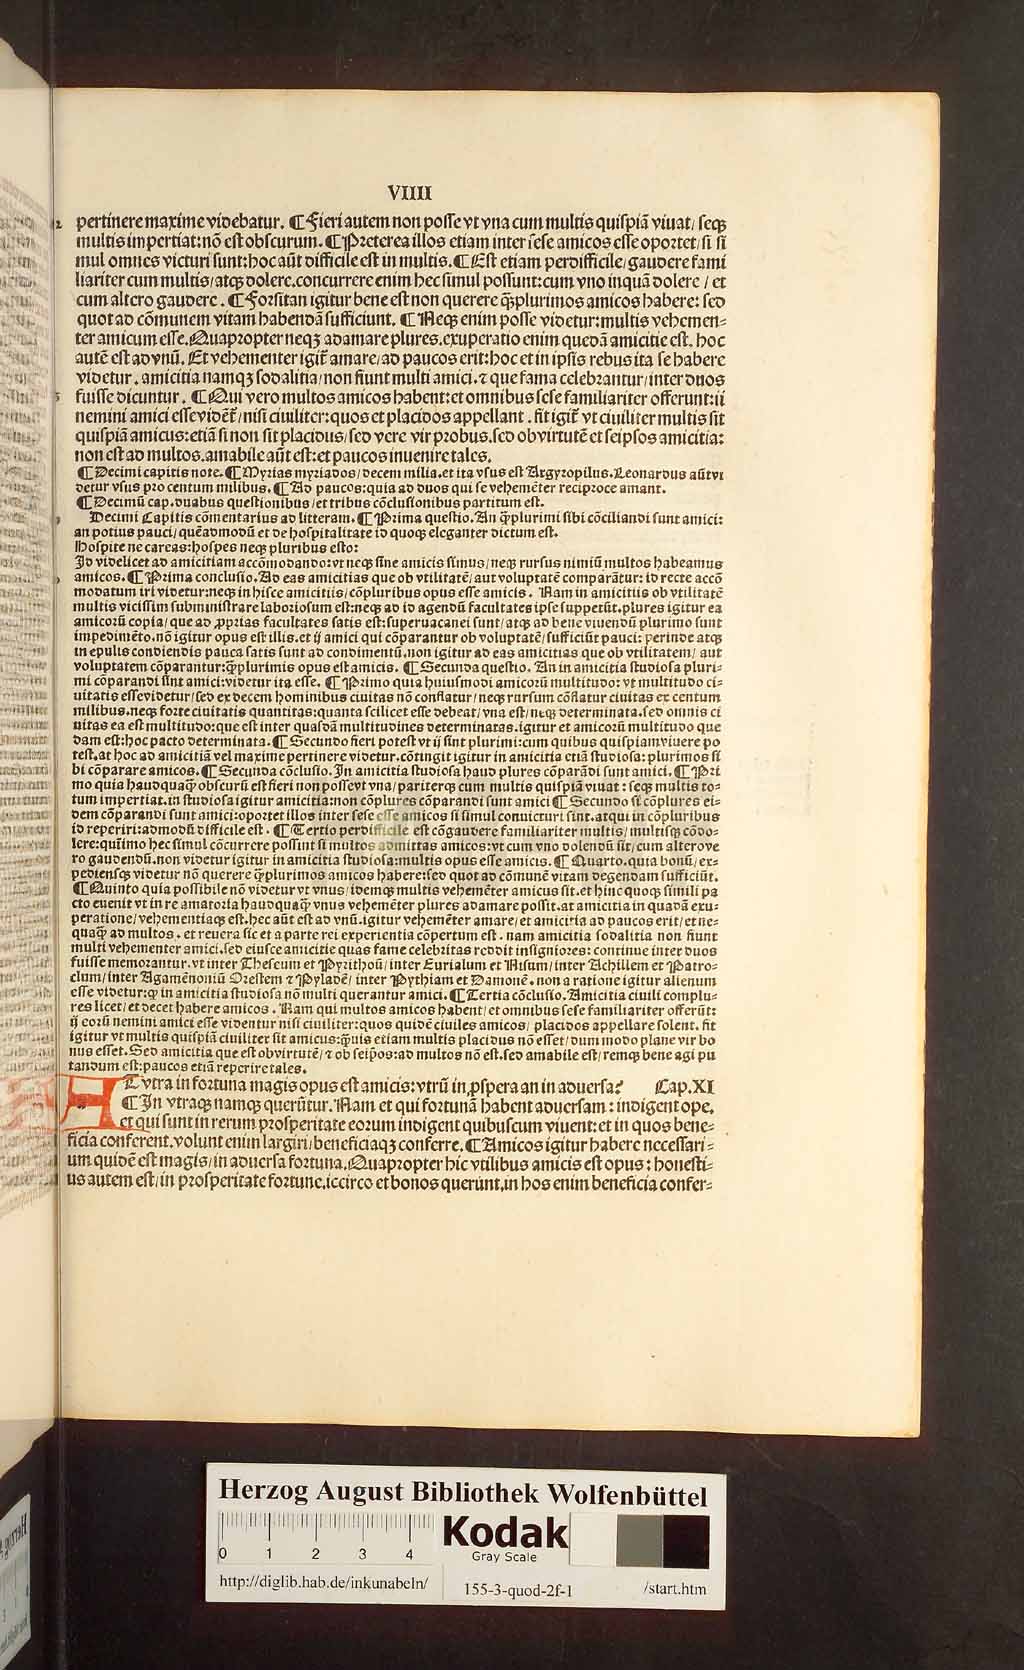 VIIII
pertinere maxime videbatur. ¶ Fieri autem non posse vt vna cum multis quispiā viuat/ seqȝ
multis impertiat: nō est obscurum. ¶ Preterea illos etiam inter sese amicos esse oportet/ si si
mul omnes victuri sunt: hoc aūt difficile est in multis. ¶ Est etiam perdifficile/ gaudere fami
liariter cum multis/ atqȝ dolere. concurrere enim hec simul possunt: cum vno inquā dolere/ et
cum altero gaudere. ¶ Forsitan igitur bene est non querere q̄ȝplurimos amicos habere: sed
quot ad cōmunem vitam habendā sufficiunt. ¶ Neqȝ enim posse videtur: multis vehemen-
ter amicum esse. Quapropter neqȝ adamare plures. exuperatio enim quedā amicitie est. hoc
autē est ad vnū. Et vehementer igit̄ amare/ ad paucos erit: hoc et in ipsis rebus ita se habere
videtur. amicitia namqȝ sodalitia/ non fiunt multi amici. ⁊ que fama celebrantur/ inter duos
fuisse dicuntur. ¶ Qui vero multos amicos habent: et omnibus sese familiariter offerunt: ii
nemini amici esse vidēt̄/ nisi ciuiliter: quos et placidos appellant. fit igit̄ vt ciuiliter multis sit
quispiā amicus: etiā si non sit placidus/ sed vere vir probus. sed ob virtutē et seipsos amicitia:
non est ad multos. amabile aūt est: et paucos inuenire tales.
¶ Decimi capitis note. ¶ Myrias myriados/ decem milia. et ita vsus est Argyropilus. Leonardus aūt vi
detur vsus pro centum milibus. ¶ Ad paucos: quia ad duos qui se vehemēter reciproce amant.
¶ Decimū cap. duabus questionibus/ et tribus cōclusionibus partitum est.
Decimi Capitis cōmentarius ad litteram. ¶ Prima questio. An q̄plurimi sibi cōciliandi sunt amici:
an potius pauci/ quēadmodū et de hospitalitate id quoqȝ eleganter dictum est.
Hospite ne careas: hospes neqȝ pluribus esto:
Id videlicet ad amicitiam accōmodando: vt neqȝ sine amicis simus/ neqȝ rursus nimiū multos habeamus
amicos. ¶ Prima conclusio. Ad eas amicitias que ob vtilitatē/ aut voluptatē comparātur: id recte accō
modatum iri videtur: neqȝ in hisce amicitiis/ cōpluribus opus esse amicis. Nam in amicitiis ob vtilitatē
multis vicissim subministrare laboriosum est: neqȝ ad id agendū facultates ipse suppetūt. plures igitur ea
amicorū copia/ que ad ꝓprias facultates satis est: superuacanei sunt/ atqȝ ad bene viuendū plurimo sunt
impedimēto. nō igitur opus est illis. et ij amici qui cōparantur ob voluptatē/ sufficiūt pauci: perinde atqȝ
in epulis condiendis pauca satis sunt ad condimentū. non igitur ad eas amicitias que ob vtilitatem/ aut
voluptatem cōparantur: q̄plurimis opus est amicis. ¶ Secunda questio. An in amicitia studiosa pluri-
mi cōparandi sint amici: videtur ita esse. ¶ Primo quia huiusmodi amicorū multitudo: vt multitudo ci-
uitatis esse videtur/ sed ex decem hominibus ciuitas nō conflatur/ neqȝ rursum cōflatur ciuitas ex centum
milibus. neqȝ forte ciuitatis quantitas: quanta scilicet esse debeat/ vna est/ neqȝ determinata. sed omnis ci
uitas ea est multitudo: que est inter quasdā multitudines determinatas. igitur et amicorū multitudo que
dam est: hoc pacto determinata. ¶ Secundo fieri potest vt ij sint plurimi: cum quibus quispiam viuere po
test. at hoc ad amicitiā vel maxime pertinere videtur. cōtingit igitur in amicitia etiā studiosa: plurimos si
bi cōparare amicos. ¶ Secunda cōclusio. In amicitia studiosa haud plures cōparādi sunt amici. ¶ Pri
mo quia haudquaqȝ obscurū est fieri non posse vt vna/ pariterqȝ cum multis quispiā viuat: seqȝ multis to-
tum impertiat. in studiosa igitur amicitia: non cōplures cōparandi sunt amici ¶ Secundo si cōplures ei-
dem cōparandi sunt amici: oportet illos inter sese esse amicos si simul conuicturi sint. atqui in cōpluribus
id reperiri: admodū difficile est. ¶ Tertio perdifficile est cōgaudere familiariter multis/ multisqȝ cōdo-
lere: quīimo hec simul cōcurrere possint si multos admittas amicos: vt cum vno dolendū sit/ cum altero ve
ro gaudendū. non videtur igitur in amicitia studiosa: multis opus esse amicis. ¶ Quarto. quia bonū/ ex-
pediensqȝ videtur nō querere q̄plurimos amicos habere: sed quot ad cōmunē vitam degendam sufficiūt.
¶ Quinto quia possibile nō videtur vt vnus/ idemqȝ multis vehemēter amicus sit. et hinc quoqȝ simili pa
cto euenit vt in re amatoria haudquaq̄ȝ vnus vehemēter plures adamare possit. at amicitia in quadā exu-
peratione/ vehementiaqȝ est. hec aūt est ad vnū. igitur vehemēter amare/ et amicitia ad paucos erit/ et ne-
quaqȝ ad multos. et reuera sic et a parte rei experientia cōpertum est. nam amicitia sodalitia non fiunt
multi vehementer amici. sed eiusce amicitie quas fame celebritas reddit insigniores: continue inter duos
fuisse memorantur. vt inter Theseum et Pyrithoū/ inter Eurialum et Nisum/ inter Achillem et Patro-
clum/ inter Agamēnoniū Orestem ⁊ Pyladē/ inter Pythiam et Damonē. non a ratione igitur alienum
esse videtur: qȝ in amicitia studiosa nō multi querantur amici. ¶ Tertia cōclusio. Amicitia ciuili complu-
res licet/ et decet habere amicos. Nam qui multos amicos habent/ et omnibus sese familiariter offerūt:
ij eorū nemini amici esse videntur nisi ciuiliter: quos quidē ciuiles amicos/ placidos appellare solent. fit
igitur vt multis quispiā ciuiliter sit amicus: q̄uis etiam multis placidus nō esset/ dum modo plane vir bo
nus esset. Sed amicitia que est ob virtutē/ ⁊ ob seip̄os: ad multos nō est. sed amabile est/ remqȝ bene agi pu
tandum est: paucos etiā reperire tales.
AT vtra in fortuna magis opus est amicis: vtrū in ꝓspera an in aduersa? Cap. XI
¶ In vtraqȝ namqȝ querūtur. Nam et qui fortunā habent aduersam: indigent ope.
et qui sunt in rerum prosperitate eorum indigent quibuscum viuent: et in quos bene-
ficia conferent. volunt enim largiri/ beneficiaqȝ conferre. ¶ Amicos igitur habere necessari-
um quidē est magis/ in aduersa fortuna. Quapropter hic vtilibus amicis est opus: honesti-
us autem est/ in prosperitate fortune. iccirco et bonos querunt. in hos enim beneficia confer-
Herzog August Bibliothek Wolfenbüttel
0 1 2 3 4
Kodak
Gray Scale
http://diglib.hab.de/inkunabeln/ 155-3-quod-2f-1 /start.htm